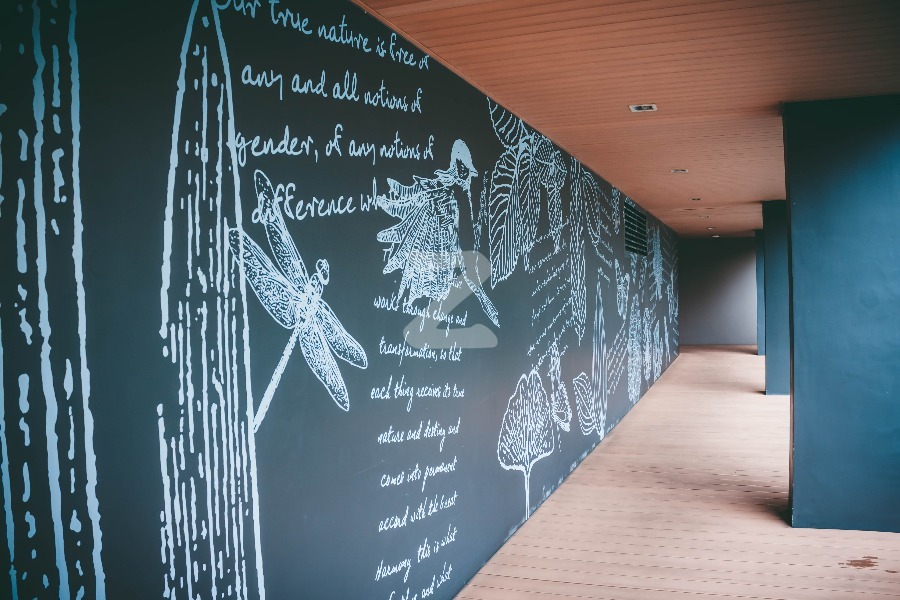 Our true nature is free of
any and all notions of
gender, of any notions of
difference
works through change and
transformation, so that
each thing receives its true
nature and destiny and
comes into permanent
accord with the Great
Harmony this is what
and what